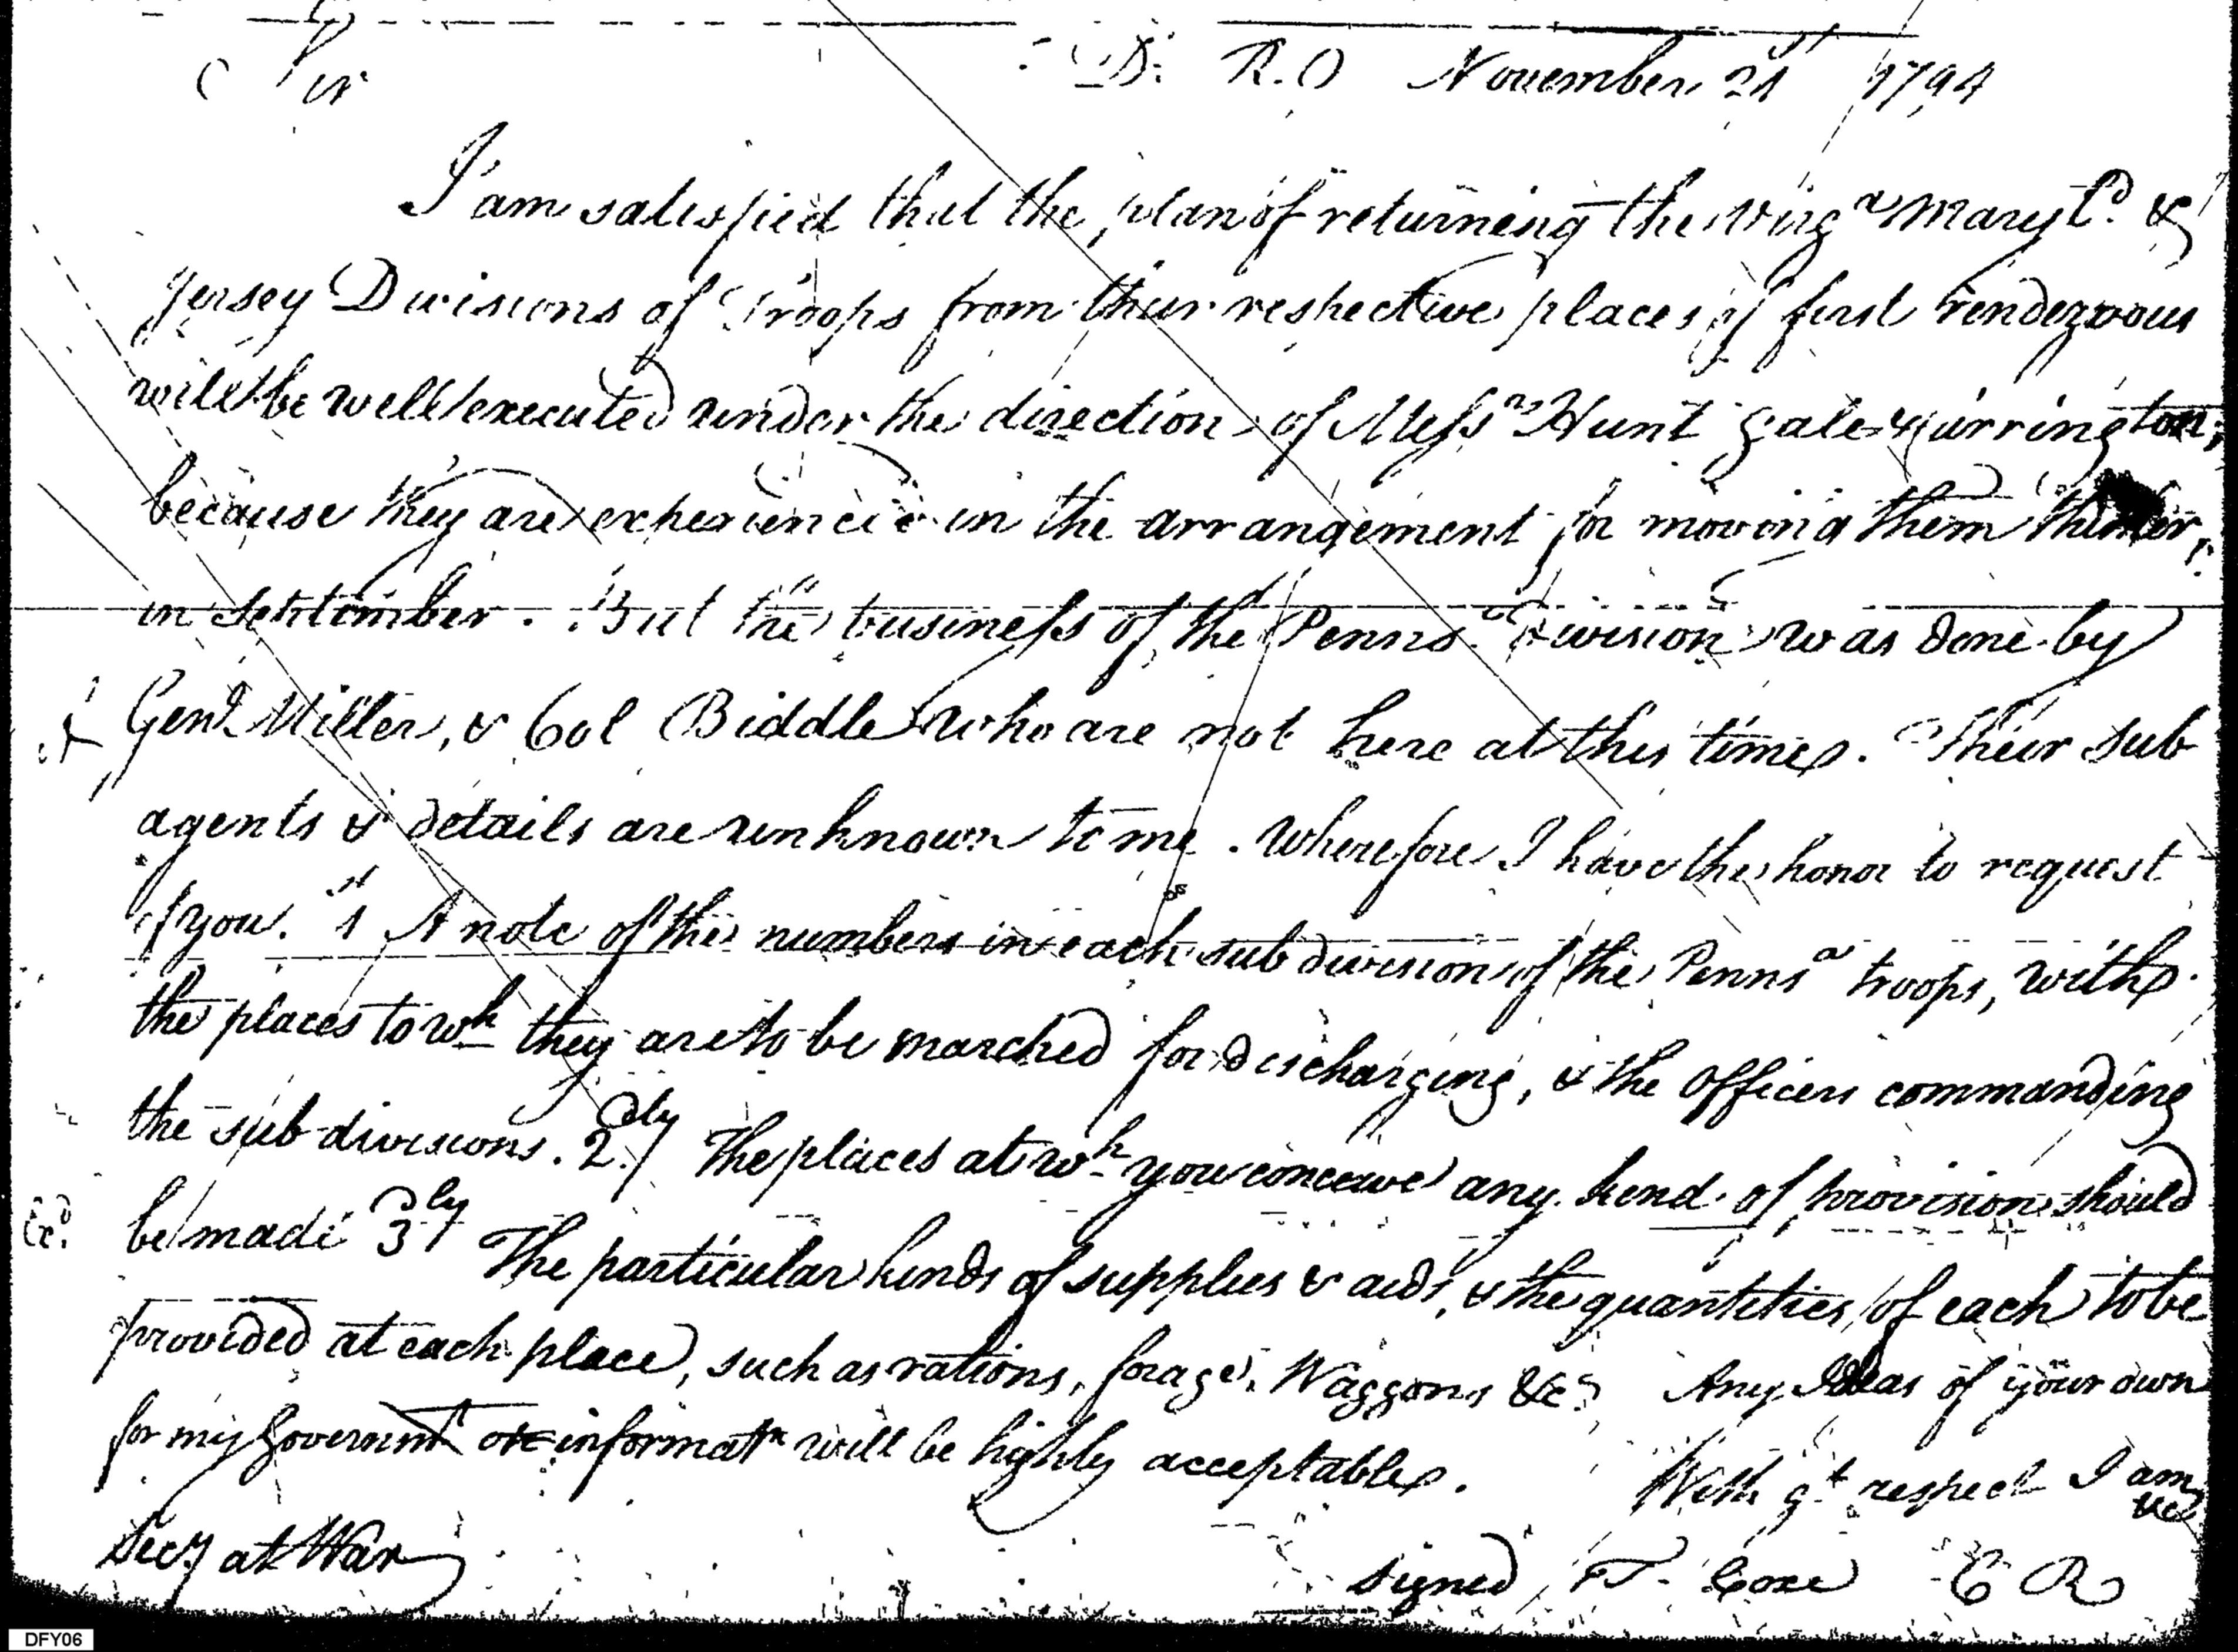 Sir
T. D: R.O November 21st 1794
I am satisfied that the plan of returning the Virga Maryld. &
Jersey Divisions of Troops from their respective places of first rendezvous
will be well executed under the direction of Messrs Hunt Gale & Carrington,
because they are experienced in the arrangement for moving them thither,
in September. But the business of the Penns.a Division was done by
Genl Miller, & Col Biddle who are not here at this time. Their sub
agents & details are unknown to me. Wherefore I have the honor to request
of you. 1st A note of the numbers in each sub division of the Pennsa troops, with
the places to wh they are to be marched for discharging, & the officers commanding
the sub-divisions. 2.dly The places at wh you conceive any kind of provision should
be made 3dly The particular kinds of supplies & aids, & the quantities of each to be
provided at each place, such as rations, forage, Waggons &c. Any Ideas of your own
for my Governmt or informatn will be highly acceptable.
With gt respect I am
&c
Secy at War
signed T. Coxe C R
DFY06